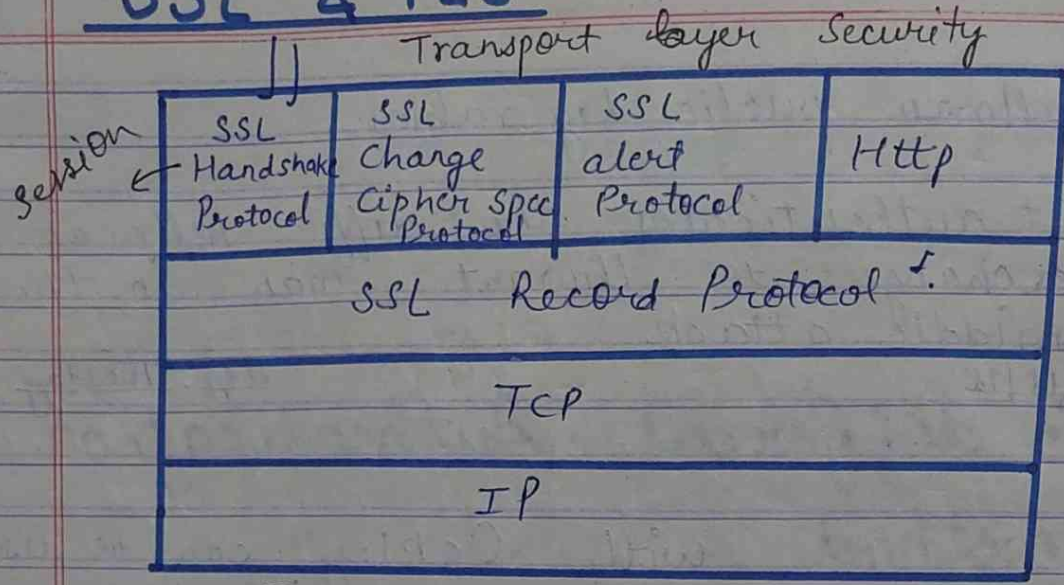 SSL &
Transport layer Security
session
SSL
Handshake
Protocol
SSL
Change
Cipher Spec
Protocol
SSL
alert
Protocol
Http
SSL Record Protocol
TCP
IP